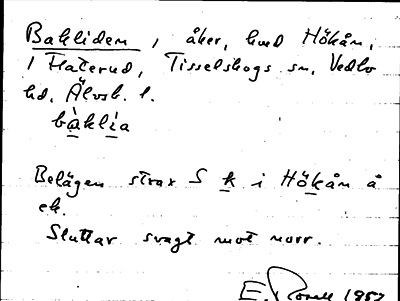 Bakliden, åker, hmd Hökån,
1 Håterud, Tisselskogs sn, Vedbo
hd, Älvsb. l.
bàklia
Belägen strax S k i Hökån å
ek.
Sluttar svagt mot norr.
E. 1957